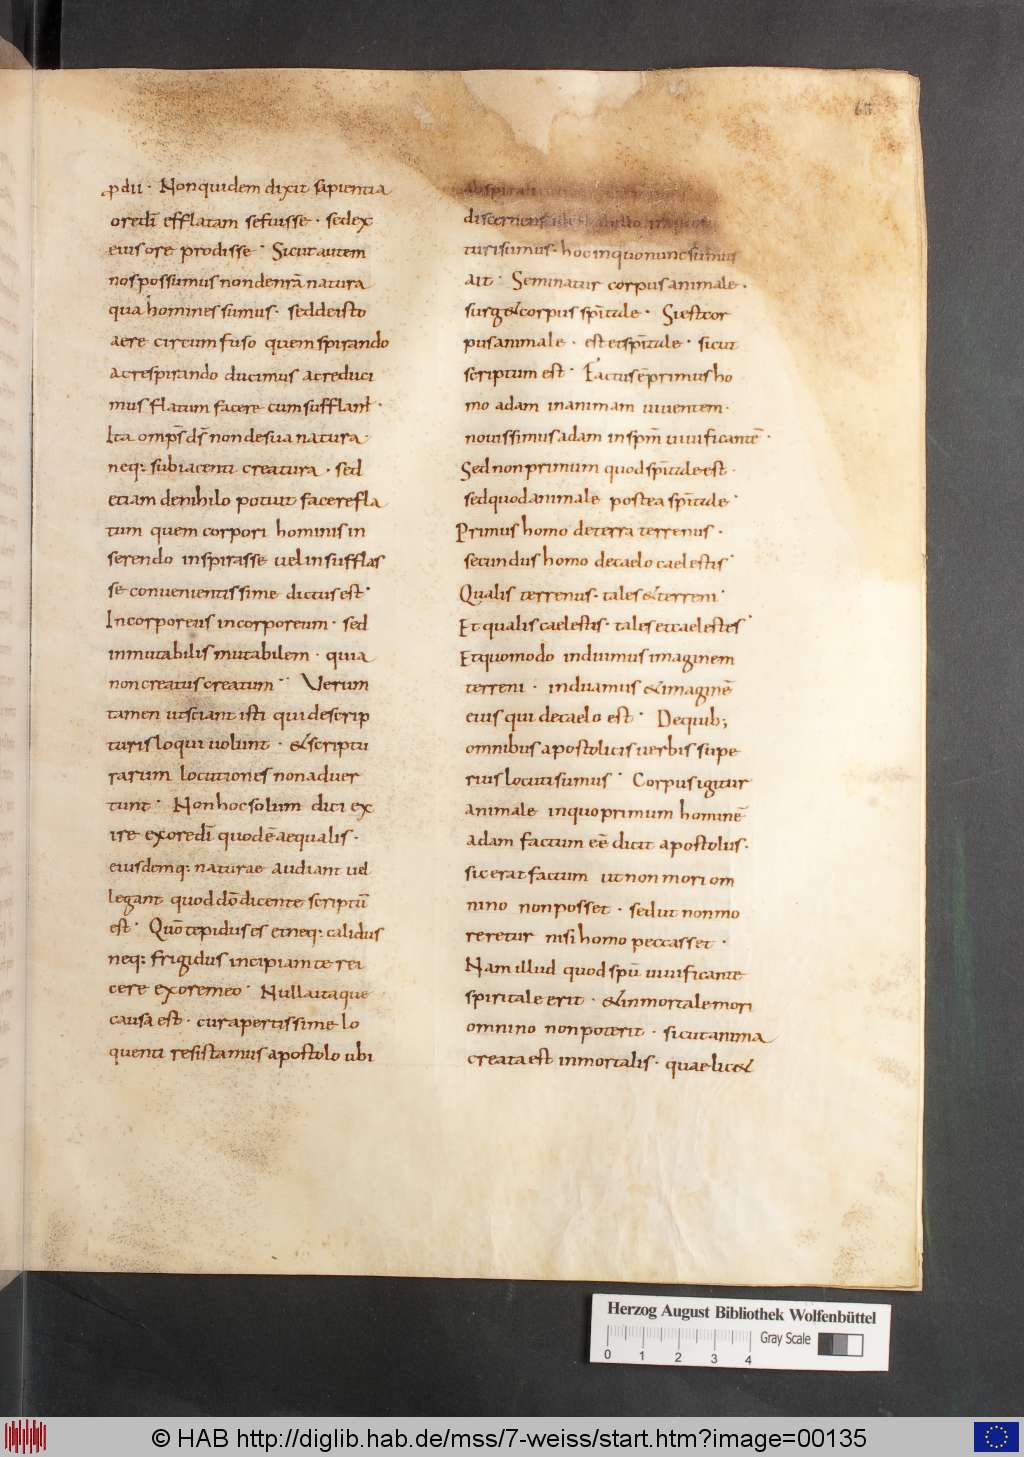 65
ꝓdii · Non quidem dixit sapientia
ore dī efflatam se fuisse · sed ex
eius ore prodisse · Sicut autem
nos possumus non de nr̄a natura
qua homines sumus · sed de isto
aere circumfuso quem spirando
ac respirando ducimus ac reduci
mus flatum facere cum sufflam̄ ·
Ita omps̄ ds̄ non de sua natura
neq; subiacenti creatura · sed
etiam de nihilo potuit facere fla
tum quem corpori hominis in
serendo inspirasse uel insufflas
se conuenientissime dictus est ·
Incorporeus incorporeum · sed
inmutabilis mutabilem · quia
non creatus creatum · Verum
tamen ut sciant isti qui de scrip
turis loqui uolunt · & scriptu
rarum locutiones non aduer
tunt · Non hoc solum dici ex
ire ex ore dī quod ē aequalis ·
eiusdemq; naturae audiant uel
legant quod dō dicente scriptū
est · Quō tepidus es et neq; calidus
neq; frigidus incipiam te rei
cere ex ore meo · Nulla itaque
causa est · cur apertissime lo
quenti resistamus apostolo ubi
ab spiritali
discernens id est ab illo in quo fu
turi sumus · hoc in quo nunc sumus
ait · Seminatur corpus animale ·
surg& corpus spīitale · Si est cor
pus animale · est et spīitale · sicut
scriptum est · Factus ē primus ho
mo adam in animam uiuentem ·
nouissimus adam in spm̄ uiuificantē ·
Sed non primum quod spīitale est ·
sed quod animale postea spīitale ·
Primus homo de terra terrenus ·
secundus homo de caelo caelestis ·
Qualis terrenus · tales & terreni ·
Et qualis caelestis · tales et caelestes ·
Et quomodo induimus imaginem
terreni · induamus & imaginē
eius qui de caelo est · De quib;
omnibus apostolicis uerbis supe
rius locuti sumus · Corpus igitur
animale in quo primum hominē
adam factum eē dicit apostolus ·
sic erat factum ut non mori om
nino non posset · sed ut non mo
reretur nisi homo peccasset ·
Nam illud quod spū uiuificante
spiritale erit · & inmortale mori
omnino non poterit · sicut anima
creata est inmortalis · quae lic&
Herzog August Bibliothek Wolfenbüttel
0 1 2 3 4 Gray Scale
© HAB http://diglib.hab.de/mss/7-weiss/start.htm?image=00135